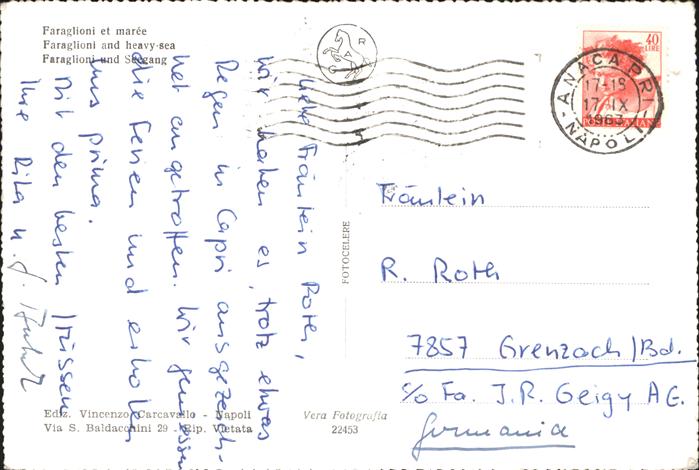 Faraglioni et marée
Faraglioni and heavy-sea
Faraglioni und Seegang
Liebe Fräulein Roth,
wir haben es, trotz etwas
Regen in Capri ausgezeich-
net angetroffen. Wir geniessen
die Ferien und erholen
uns prima.
Mit den besten Grüssen
Ihre Rita u. J.
G A R
40
LIRE
ANACAPRI
17-18
17.IX
1963
NAPOLI
Fräulein
R. Roth
7857 Grenzach/Bd.
c/o Fa. J.R. Geigy AG.
Germania
FOTOCELERE
Ediz. Vincenzo Carcavallo - Napoli
Via S. Baldacchini 29 - Rip. Vietata
Vera Fotografia
22453